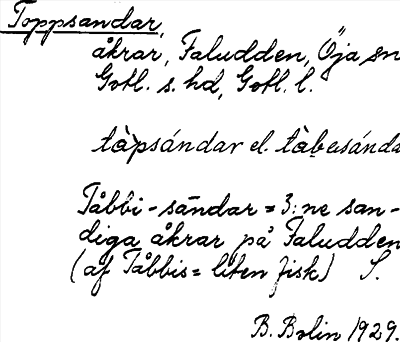 Toppsandar,
åkrar, Faludden, Öja sn
Gotl. s. hd, Gotl. l.
tå̀psándar el.
Tåbbi-sandar = 3:ne san-
diga åkrar på Faludden
(af Tåbbis = liten fisk) S.
B. Bolin 1929.